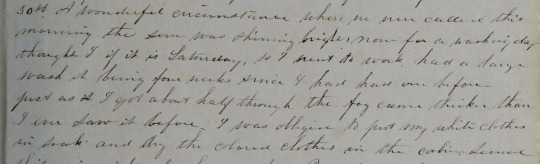 30th A wonderful circumstance when we were called this
morning the sun was shining bright now for a washing day
thought I if it is Saturday, so I went to work had a large
wash it being four weeks since I had had one before
just as I got about half through the fog came thicker than
I ever saw it before. I was obliged to put my white clothes
in soak and dry the colored clothes in the cabin